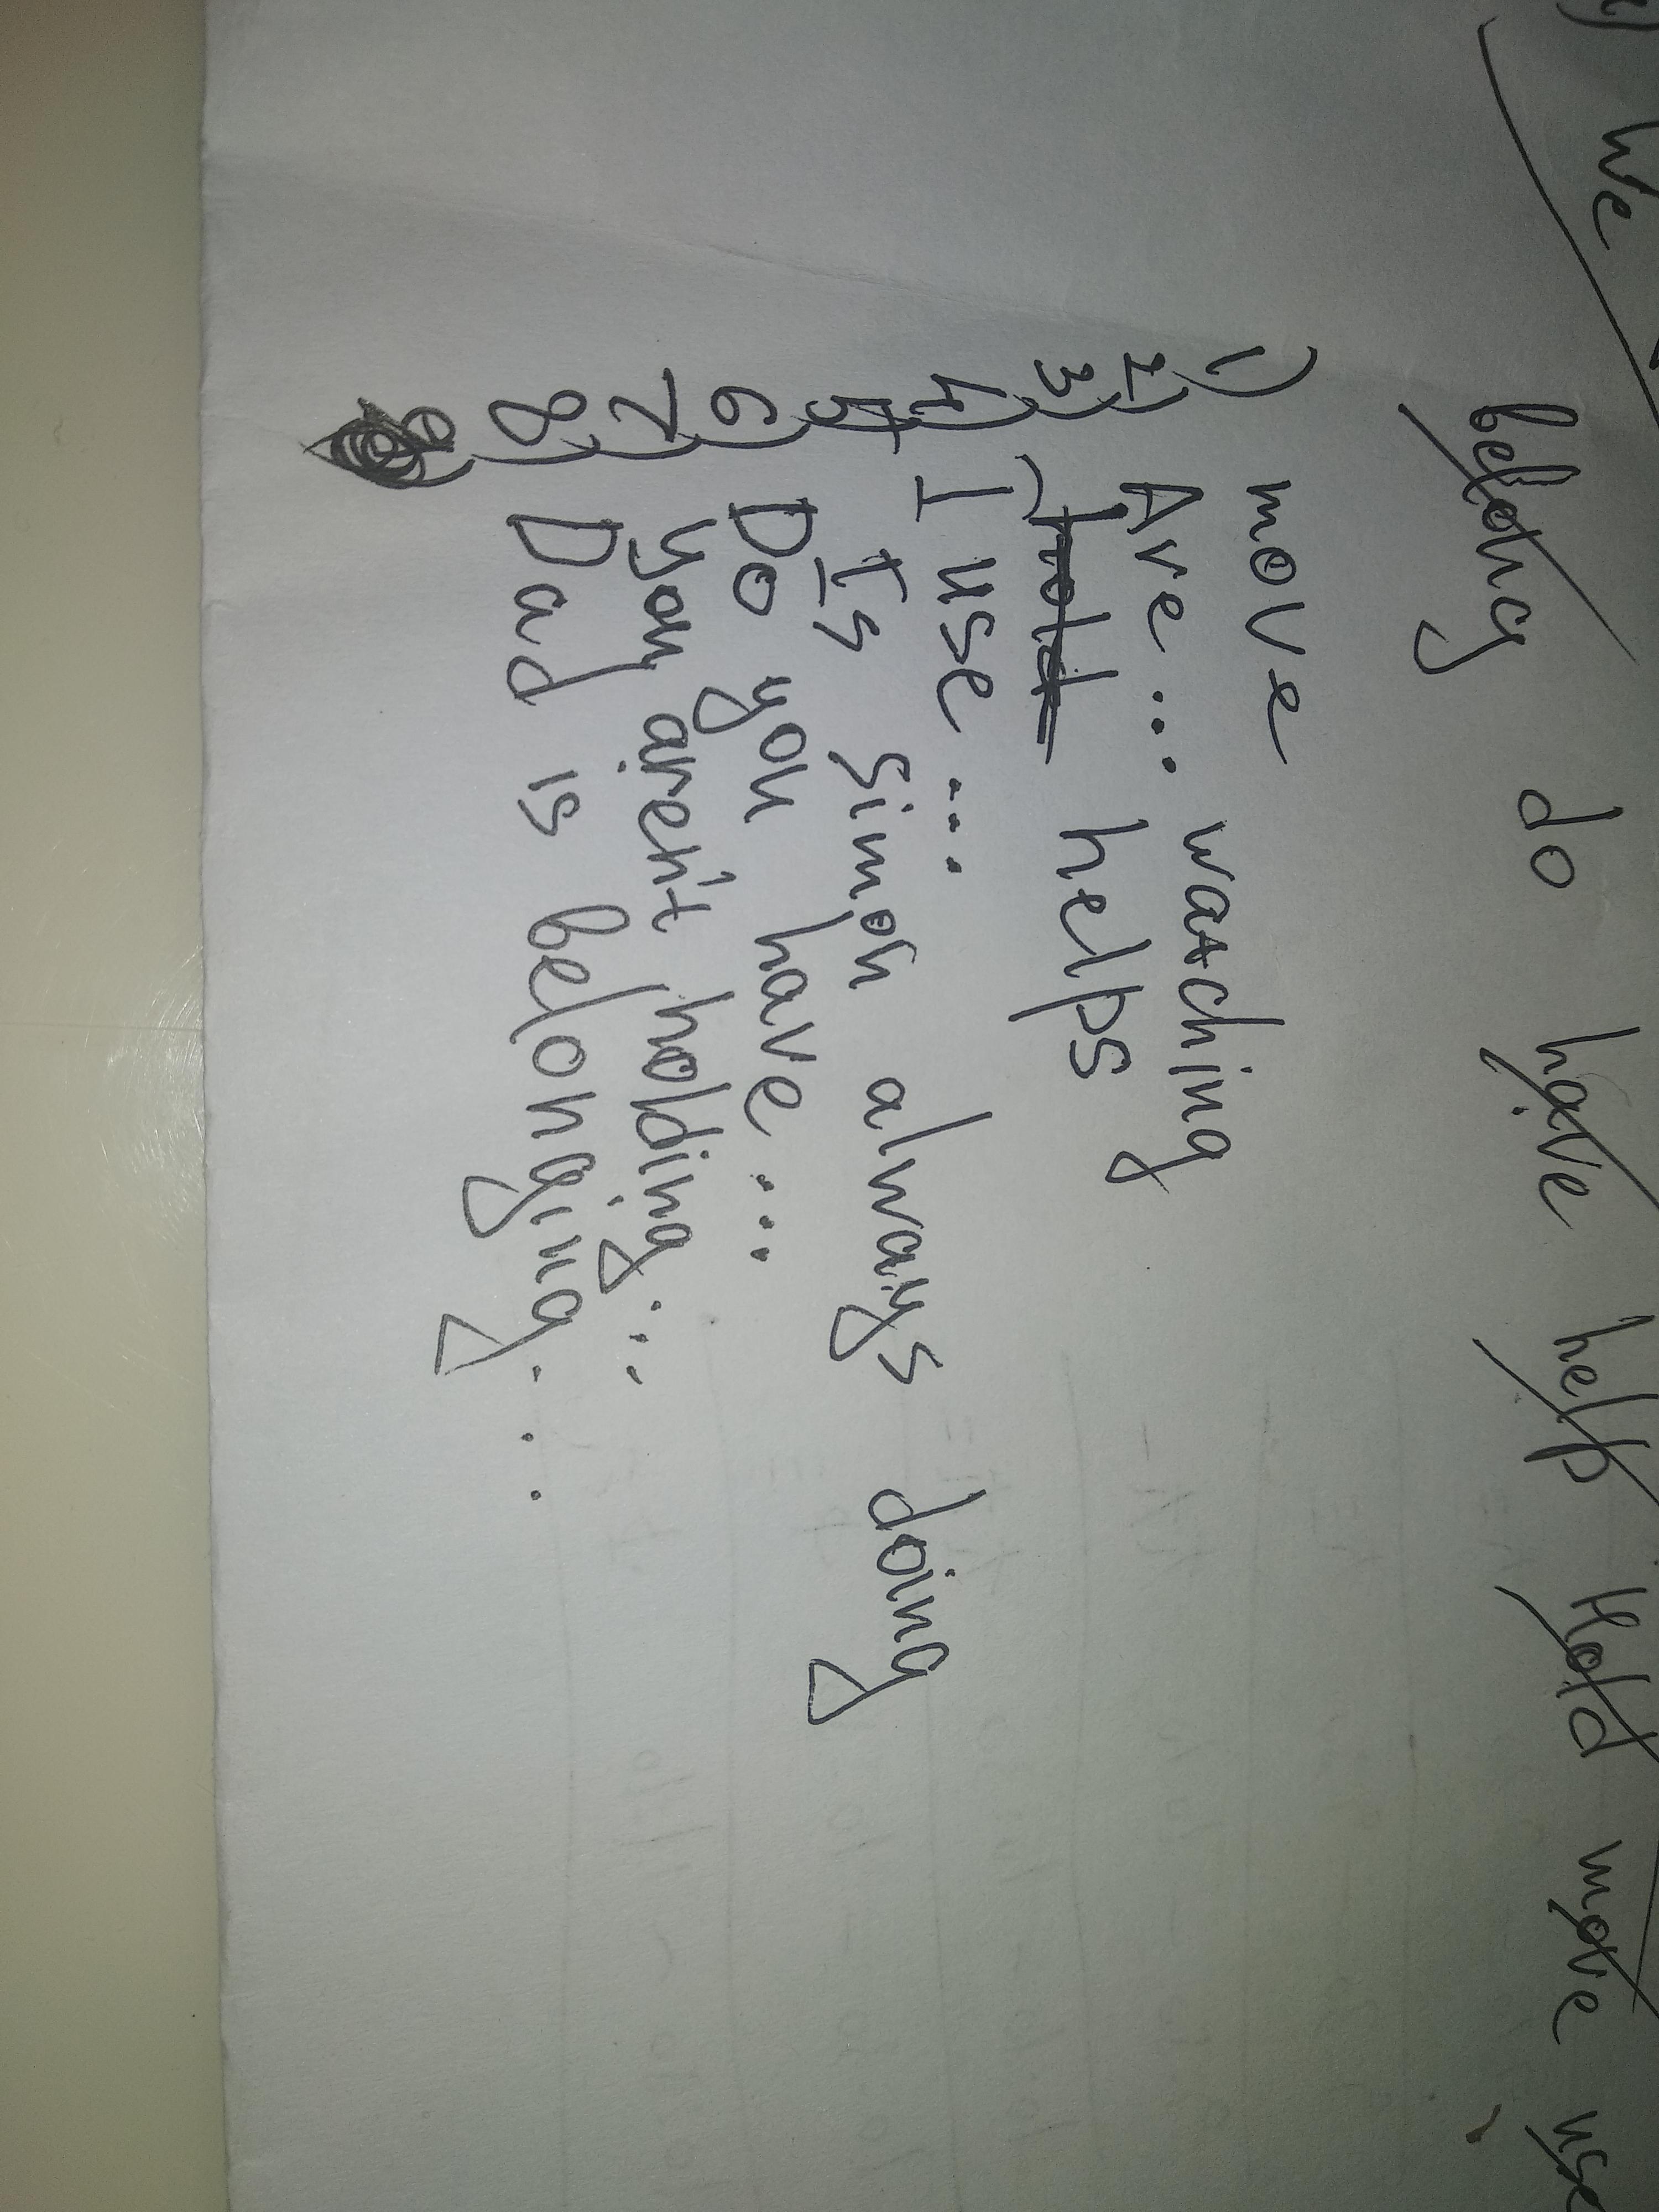 We
belong do have help Hold move use
1) move
2) Are... watching
3) hold helps
4) I use ...
5) Is simon always doing
6) Do you have ...
7) you aren't holding ...
8) Dad is belonging ...